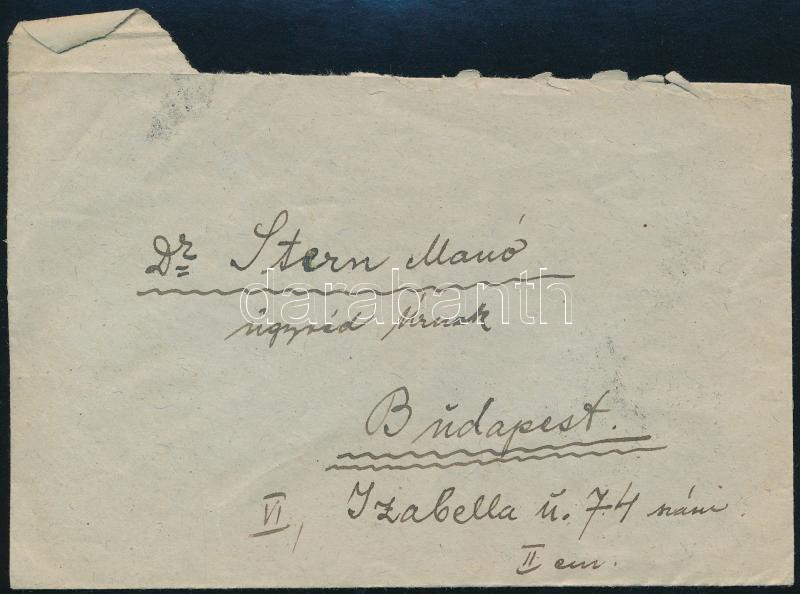 Dr Stern Manó
darabanth
ügyvéd Urnak
Budapest.
VI, Izabella ú. 74 szám
II em.